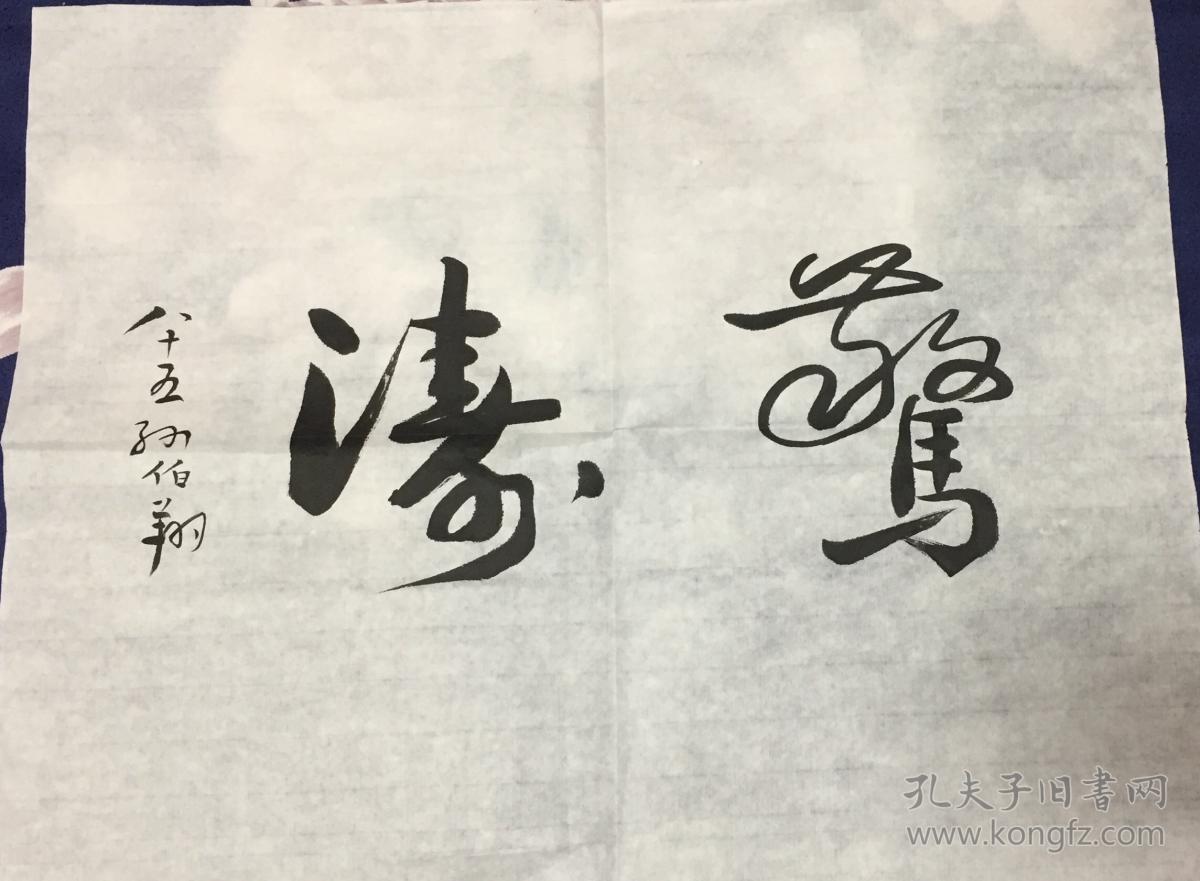 驚濤
八十五孙伯翔
孔夫子旧書网
www.kongfz.com